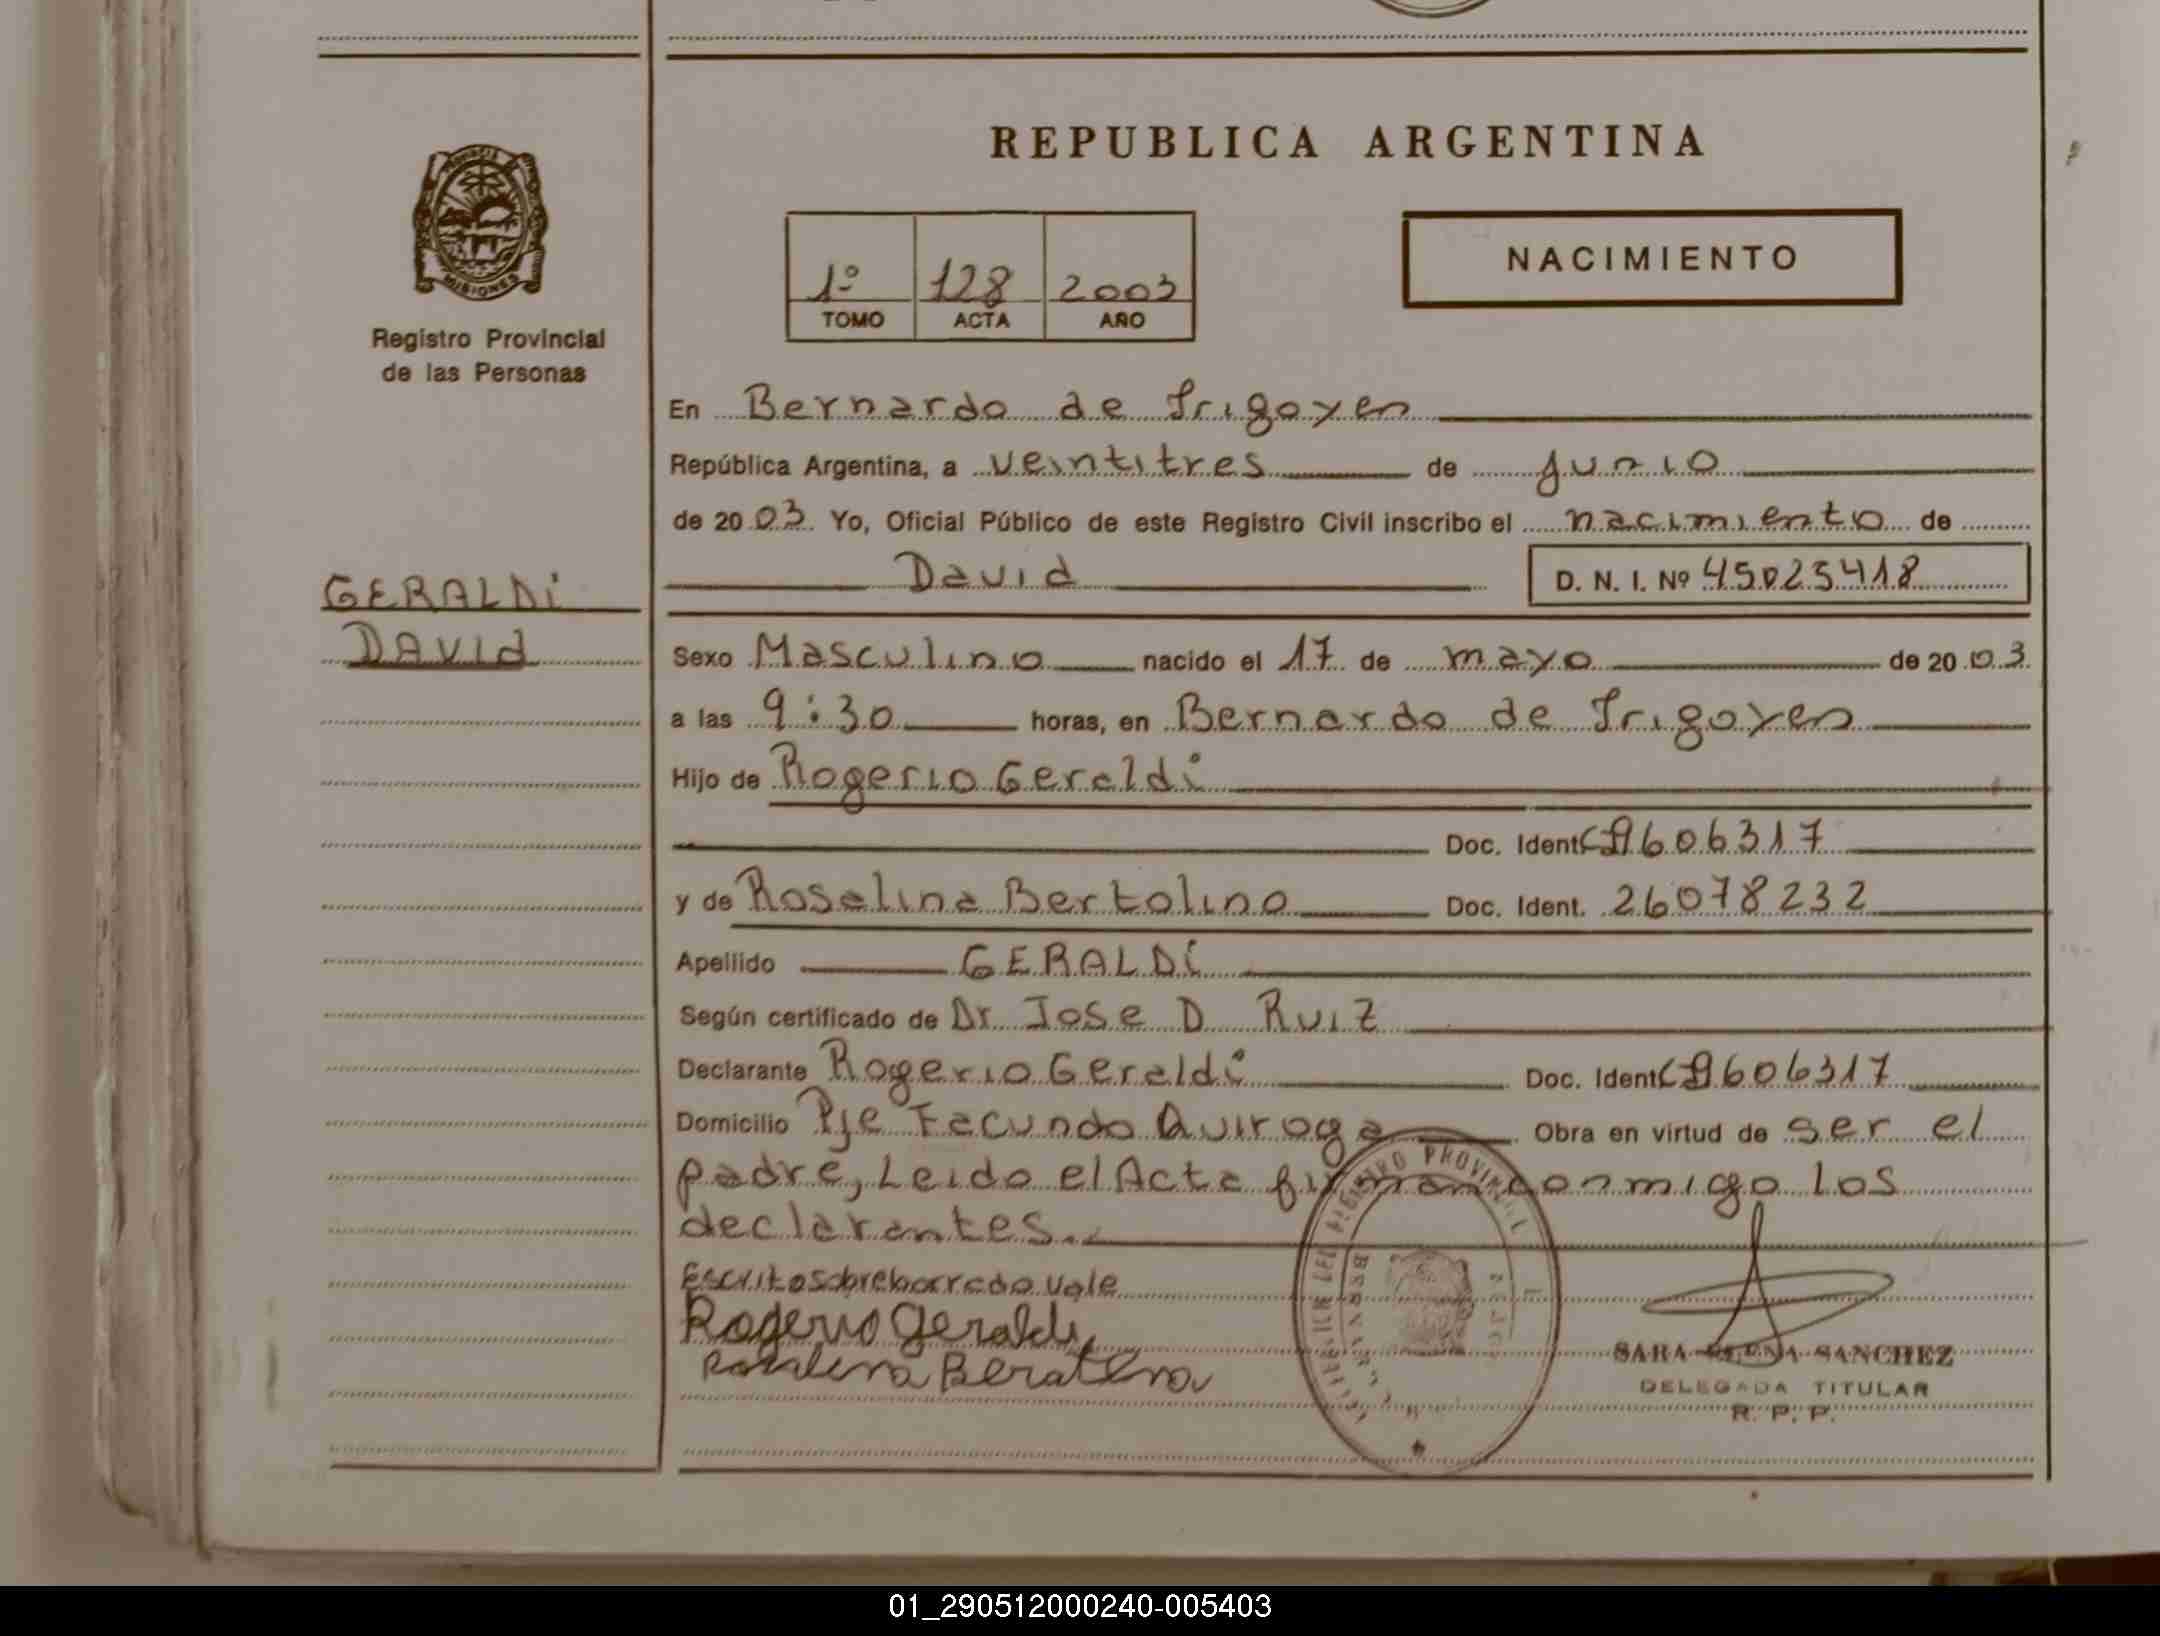 REPUBLICA ARGENTINA
PROVINCIA
MISIONES
Registro Provincial
de las Personas
1º 128 2003
TOMO ACTA AÑO
NACIMIENTO
En Bernardo de Irigoyen
República Argentina, a veintitres de junio
de 2003 Yo, Oficial Público de este Registro Civil inscribo el nacimiento de
GERALDI
DAVID
David D. N. I. Nº 45025418
Sexo Masculino nacido el 17 de mayo de 2003
a las 9:30 horas, en Bernardo de Irigoyen
Hijo de Rogerio Geraldi
Doc. Ident 9606317
y de Rosalina Bertolino Doc. Ident. 26078232
Apellido GERALDI
Según certificado de Dr Jose D Ruiz
Declarante Rogerio Geraldi Doc. Ident 9606317
Domicilio Pje Facundo Quiroga Obra en virtud de ser el
padre, Leido el Acta firman conmigo los
declarantes.
Escrito sobreborrado vale
Rogerio Geraldi
REGISTRO PROVINCIAL
SARA ELENA SANCHEZ
DELEGADA TITULAR
R. P. P.
01_290512000240-005403